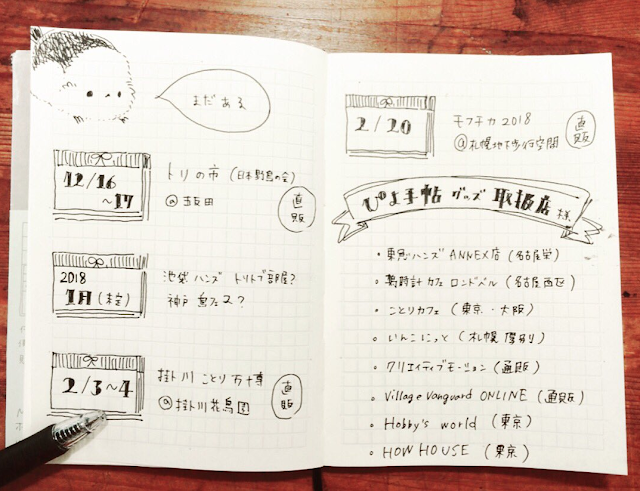 まだある
12/16
~17
トリの市 (日本野鳥の会)
@五反田
直販
2018
1月(未定)
池袋ハンズ トリトブ部屋?
神戸 鳥フェス?
2/3~4
掛川 ことり万博
@掛川花鳥園
直販
2/20
モフチカ2018
@札幌地下歩行空間
直販
ぴよ手帖 グッズ 取扱店 様
• 東急ハンズ ANNEX店 (名古屋栄)
• 鳩時計カフェ ロンドベル (名古屋西区)
• ことりカフェ (東京・大阪)
• いんこにっと (札幌 厚別)
• クリエイティブモーション (通販)
• Village Vanguard ONLINE (通販)
• Hobby's world (東京)
• HOW HOUSE (東京)